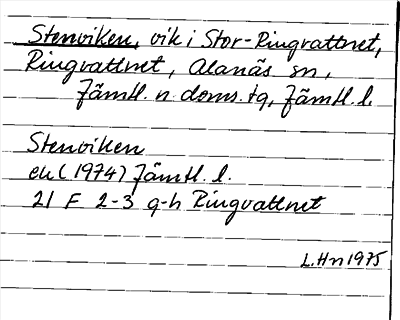 Stenviken, vik i Stor-Ringvattnet,
Ringvattnet, Alanäs sn,
Jämtl. n. doms. tg, Jämtl. l.
Stenviken
ek (1974) Jämtl. l.
21 F 2-3 g-h Ringvattnet
L.Hn 1975